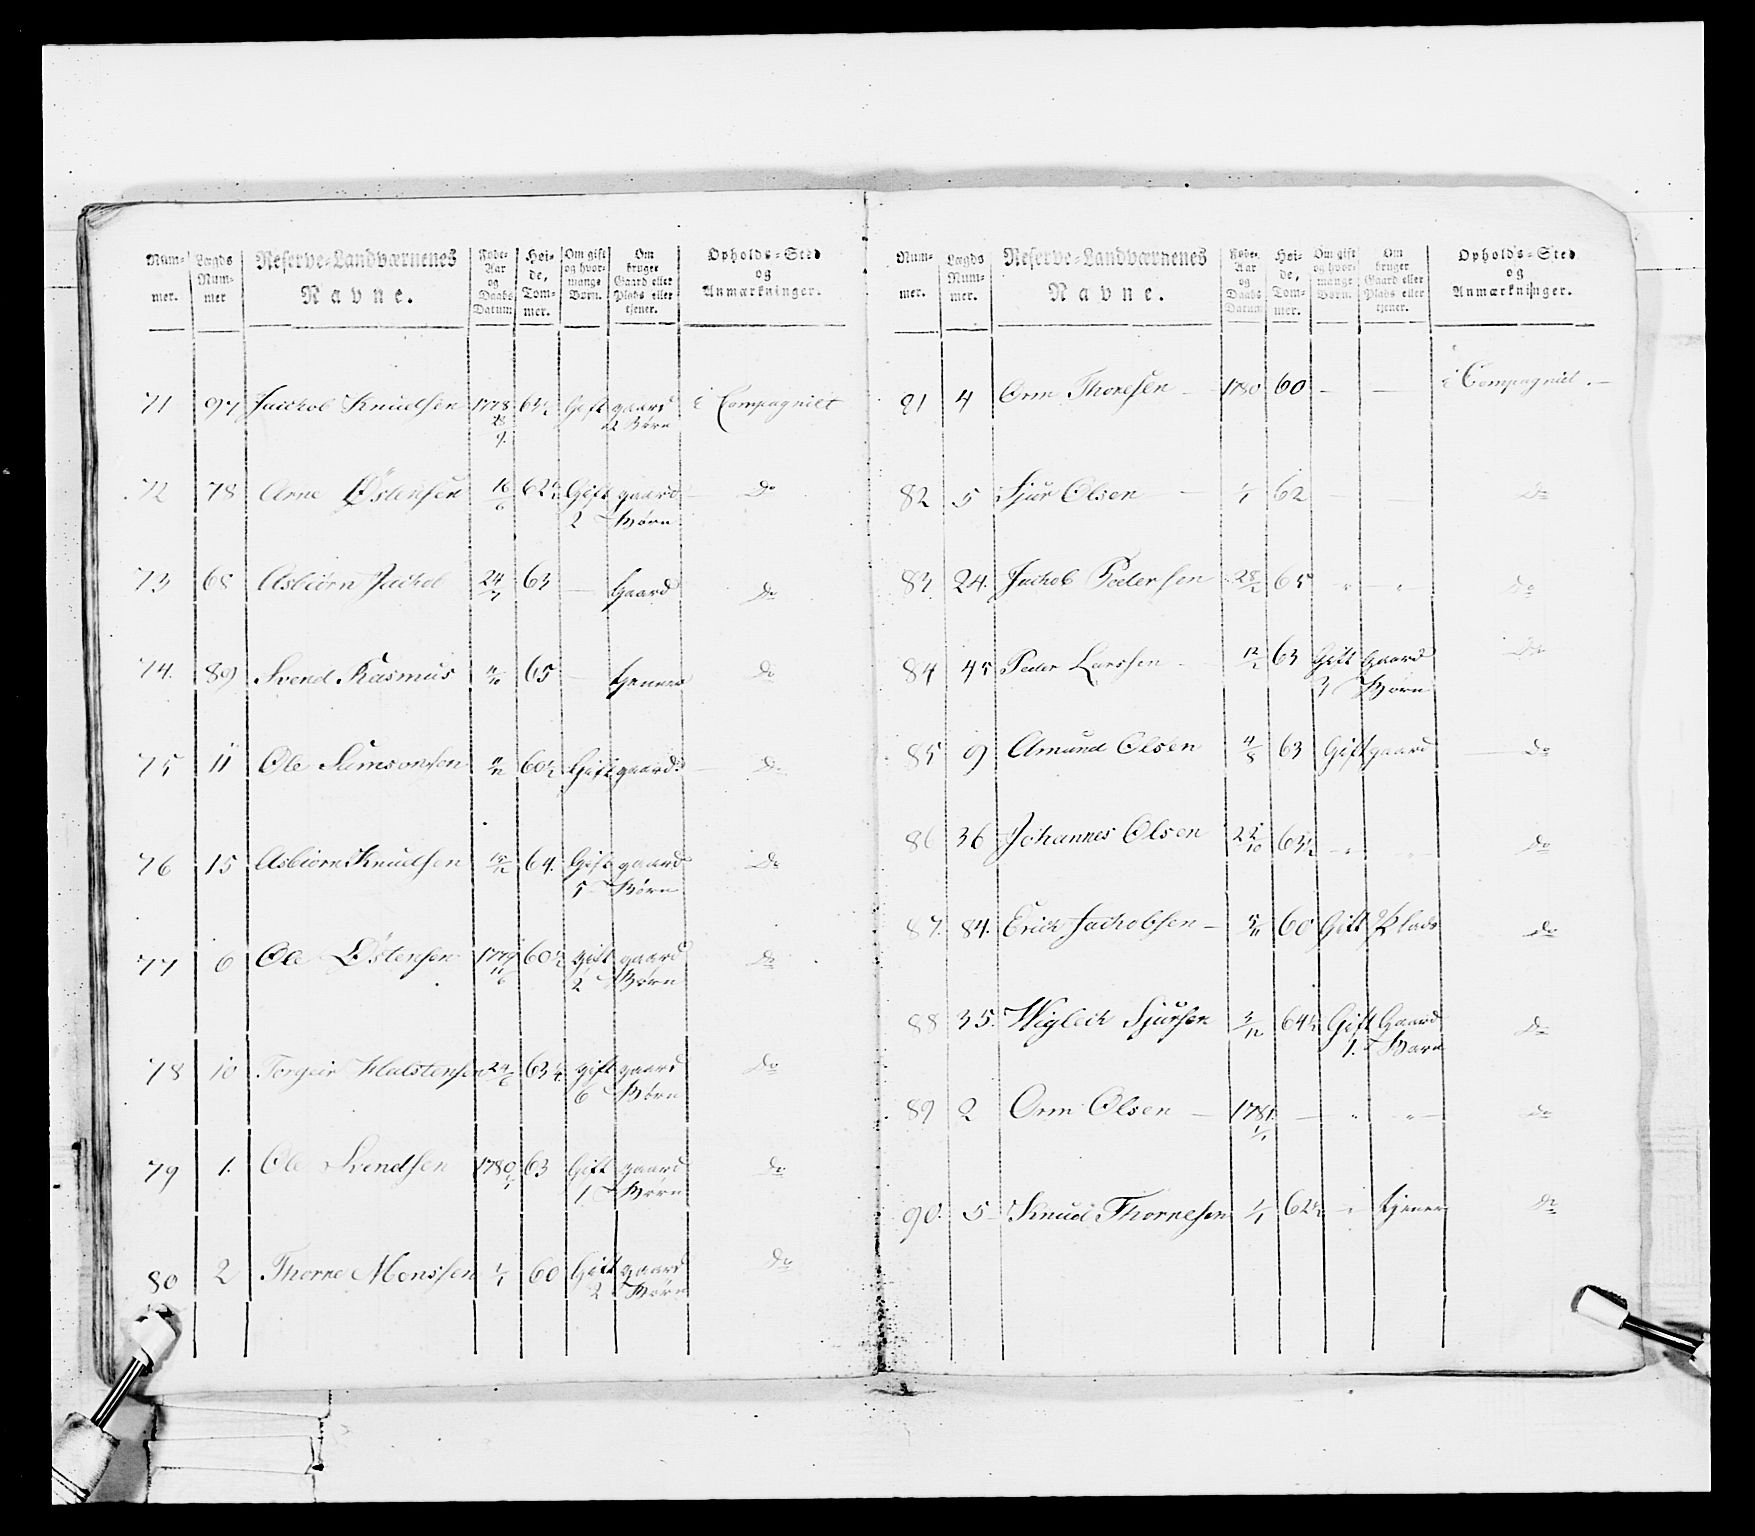 Num-mer. Lægds Num-mer Reserve-Landværnenes Navne. Føde-Aar og Daabs Datum Høi-de, Tom-mer. Om gift og hvor-mange Børn. Om bruger Gaard eller Plads eller tjener. Opholds-Sted og Anmærkninger.
71 97 Jackob Knudsen 1778 28/9 63½ Gift gaard i Compagniet
2 Børn
72 78 Arne Østensen 16/6 62½ Gift gaard Do
2 Børn
73 68 Asbiørn Jackob 24/7 63 — Gaard Do
74. 89 Svend Rasmus 65 — tjenner Do
75 11 Ole Simsonsen 60½ Gift gaard Do
76 15 Asbiørn Knudsen 64. Gift gaard Do
5 Børn
77 6 Ole Østensen 1779 16/6 60½ gift gaard Do
2 Børn
78 10 Torgeir Halstensen 24/6 63¼ gift gaard Do
6 Børn
79 1. Ole Svendsen 1780 1/1 63 Gift gaard Do
1 Børn
80 2 Thorne Monssen 1/1 60 Gift gaard Do
2 Børn
Num-mer. Lægds Num-mer. Reserve-Landværnenes Navne. Føde-Aar og Daabs Datum Høi-de, Tom-mer. Om gift og hvor-mange Børn. Om bruger Gaard eller Plads eller tjener. Opholds-Sted og Anmærkninger.
81 4 Orm Thoresen — 1780 60 — — i Compagniet. —
82 5 Sjur Olsen — 1/1 62 — — Do
83 24. Jackob Pedersen 28/2 65 " — " Do
84 45 Peder Larssen 12/2 63 Gift Gaard Do
3 Børn
85 9 Amund Olsen 4/8 63 Gift gaard — Do
86 36 Johannes Olsen 22/10 63½ — " Do
87. 84. Erick Jackobsen — 5/11 60 Gift Plads Do
88 35. Wigleik Sjursen 3/12 64½ Gift Gaard Do
1. Barn
89 2 Orm Olsen — 1781. 1/1 — " " — Do
90. 5 — Knud Thornesen 1/1 62½ — " tjener Do